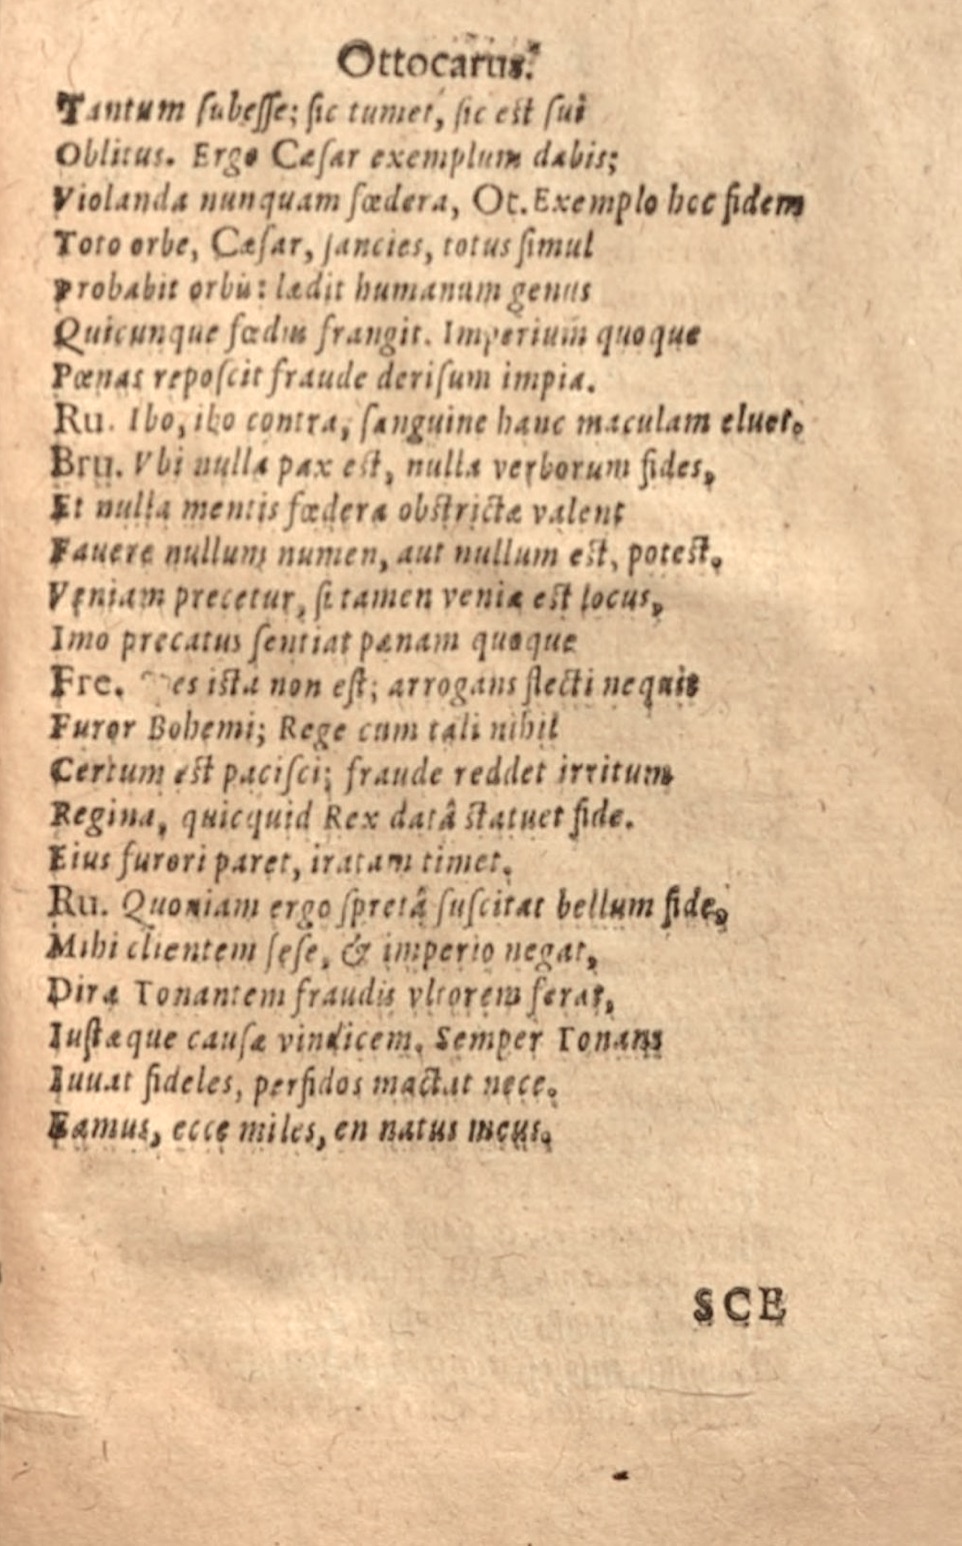 Ottocarus.
Tantum ſubeſſe; ſic tumet, ſic est ſui
Oblitus. Ergo Cæſar exemplum dabis;
Violanda nunquam fœdera, Ot. Exemplo hoc fidem
Toto orbe, Cæſar, ſancies, totus ſimul
Probabit orbis: lædit humanum genus
Quicunque fœdus frangit. Imperium quoque
Pœnas repoſcit fraude deriſum impia.
Ru. Ibo, ibo contra, ſanguine hanc maculam eluet.
Bru. Vbi nulla pax est, nulla verborum fides,
Et nulla mentis fœdera obstrictæ valent
Fauere nullum numen, aut nullum est, potest.
Veniam precetur, ſi tamen veniæ est locus,
Imo precatus ſentiat pænam quoque
Fre. es ista non eſt; arrogans flecti nequit
Furor Bohemi; Rege cum tali nihil
Certum est paciſci; fraude reddet irritum
Regina, quicquid Rex datâ statuet fide.
Eius furori paret, iratam timet.
Ru. Quoniam ergo ſpretâ ſuſcitat bellum fide,
Mihi clientem ſeſe, & imperio negat,
Diræ Tonantem fraudis vltorem ferat,
Iuſtæque cauſæ vindicem. Semper Tonans
Iuuat fideles, perfidos mactat nece.
Eamus, ecce miles, en natus meus.
SCE